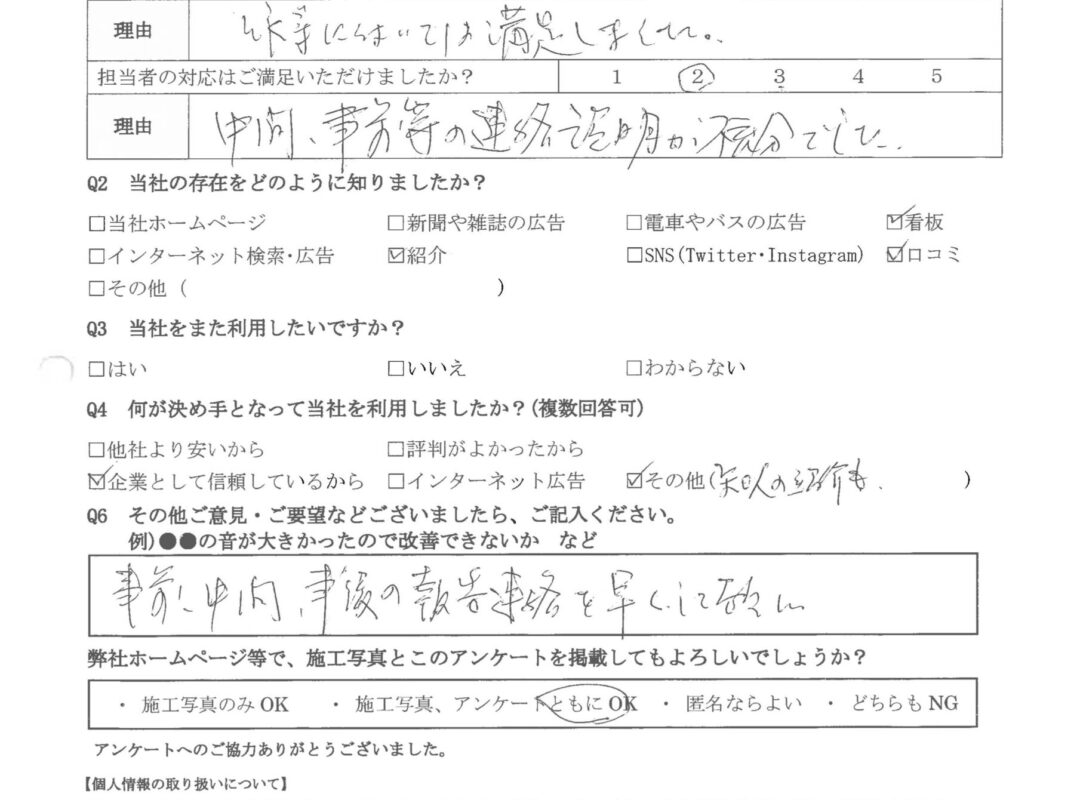 理由 等については満足しました。
担当者の対応はご満足いただけましたか? 1 2 3 4 5
理由 中間、事前等の連絡説明が不充分でした。
Q2 当社の存在をどのように知りましたか?
□当社ホームページ □新聞や雑誌の広告 □電車やバスの広告 ☑看板
□インターネット検索・広告 ☑紹介 □SNS(Twitter・Instagram) ☑口コミ
□その他 ( )
Q3 当社をまた利用したいですか?
□はい □いいえ □わからない
Q4 何が決め手となって当社を利用しましたか?(複数回答可)
□他社より安いから □評判がよかったから
☑企業として信頼しているから □インターネット広告 ☑その他(知人の紹介も. )
Q6 その他ご意見・ご要望などございましたら、ご記入ください。
例)●●の音が大きかったので改善できないか など
事前、中間、事後の報告連絡を早くして欲しい
弊社ホームページ等で、施工写真とこのアンケートを掲載してもよろしいでしょうか?
・ 施工写真のみ OK ・ 施工写真、アンケートともに OK ・ 匿名ならよい ・ どちらも NG
アンケートへのご協力ありがとうございました。
【個人情報の取り扱いについて】